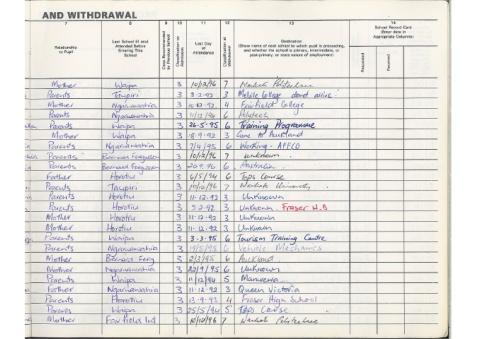 AND WITHDRAWAL
7 8 9 10 11 12 13 14
Relationship to Pupil
Last School if any Attended Before Entering This School
Last Day of Attendance
Destination
(Show name of next school to which pupil is proceeding, and whether the school is primary, intermediate, or post-primary, or state nature of employment)
School Record Card
(Enter date in Appropriate Column)
Requested Received
Mother Waipa 3 10/12/96 7 Waikato Polytechnic
Parents Taupiri 3 3
Mother Ngaruawahia 3 4 Fairfield College
Parents Ngaruawahia 3 6
Parents Waipa 3 26-5-95 6 Training Programme
Mother Waipa 3 3 Gone to Auckland
Parents Ngaruawahia 3 7/4/95 6 Working - AFFCO
Parents Bernard Fergusson 3 10/12/96 7 unknown
Parents Bernard Fergusson 3 6 Australia
Father Horotiu 3 6/5/94 6 Tops Course
Parents Taupiri 3 10/12/96 7 Waikato University
Parents Horotiu 3 11-12-92 3 Unknown
Parents Horotiu 3 3 Unknown. Fraser H.S
Mother Horotiu 3 11-12-92 3 Unknown
Mother Horotiu 3 11-12-92 3 Unknown
Parents Waipa 3 3-3-95 6 Tourism Training Centre
Parents Ngaruawahia 3 6 Vehicle Mechanics
Mother Bernard Ferg 3 2/3/95 6 Auckland
Mother Ngaruawahia 3 22/9/95 6 Unknown
Parents Waipa 3 11/12/94 5 Manurewa
Father Ngaruawahia 3 11-12-92 3 Queen Victoria
Parents Horotiu 3 13-9-93 4 Fraser High School
Parents Waipa 3 25/5/94 5 Tops Course
Mother Fairfield Int 3 10/12/96 7 Waikato Polytechnic